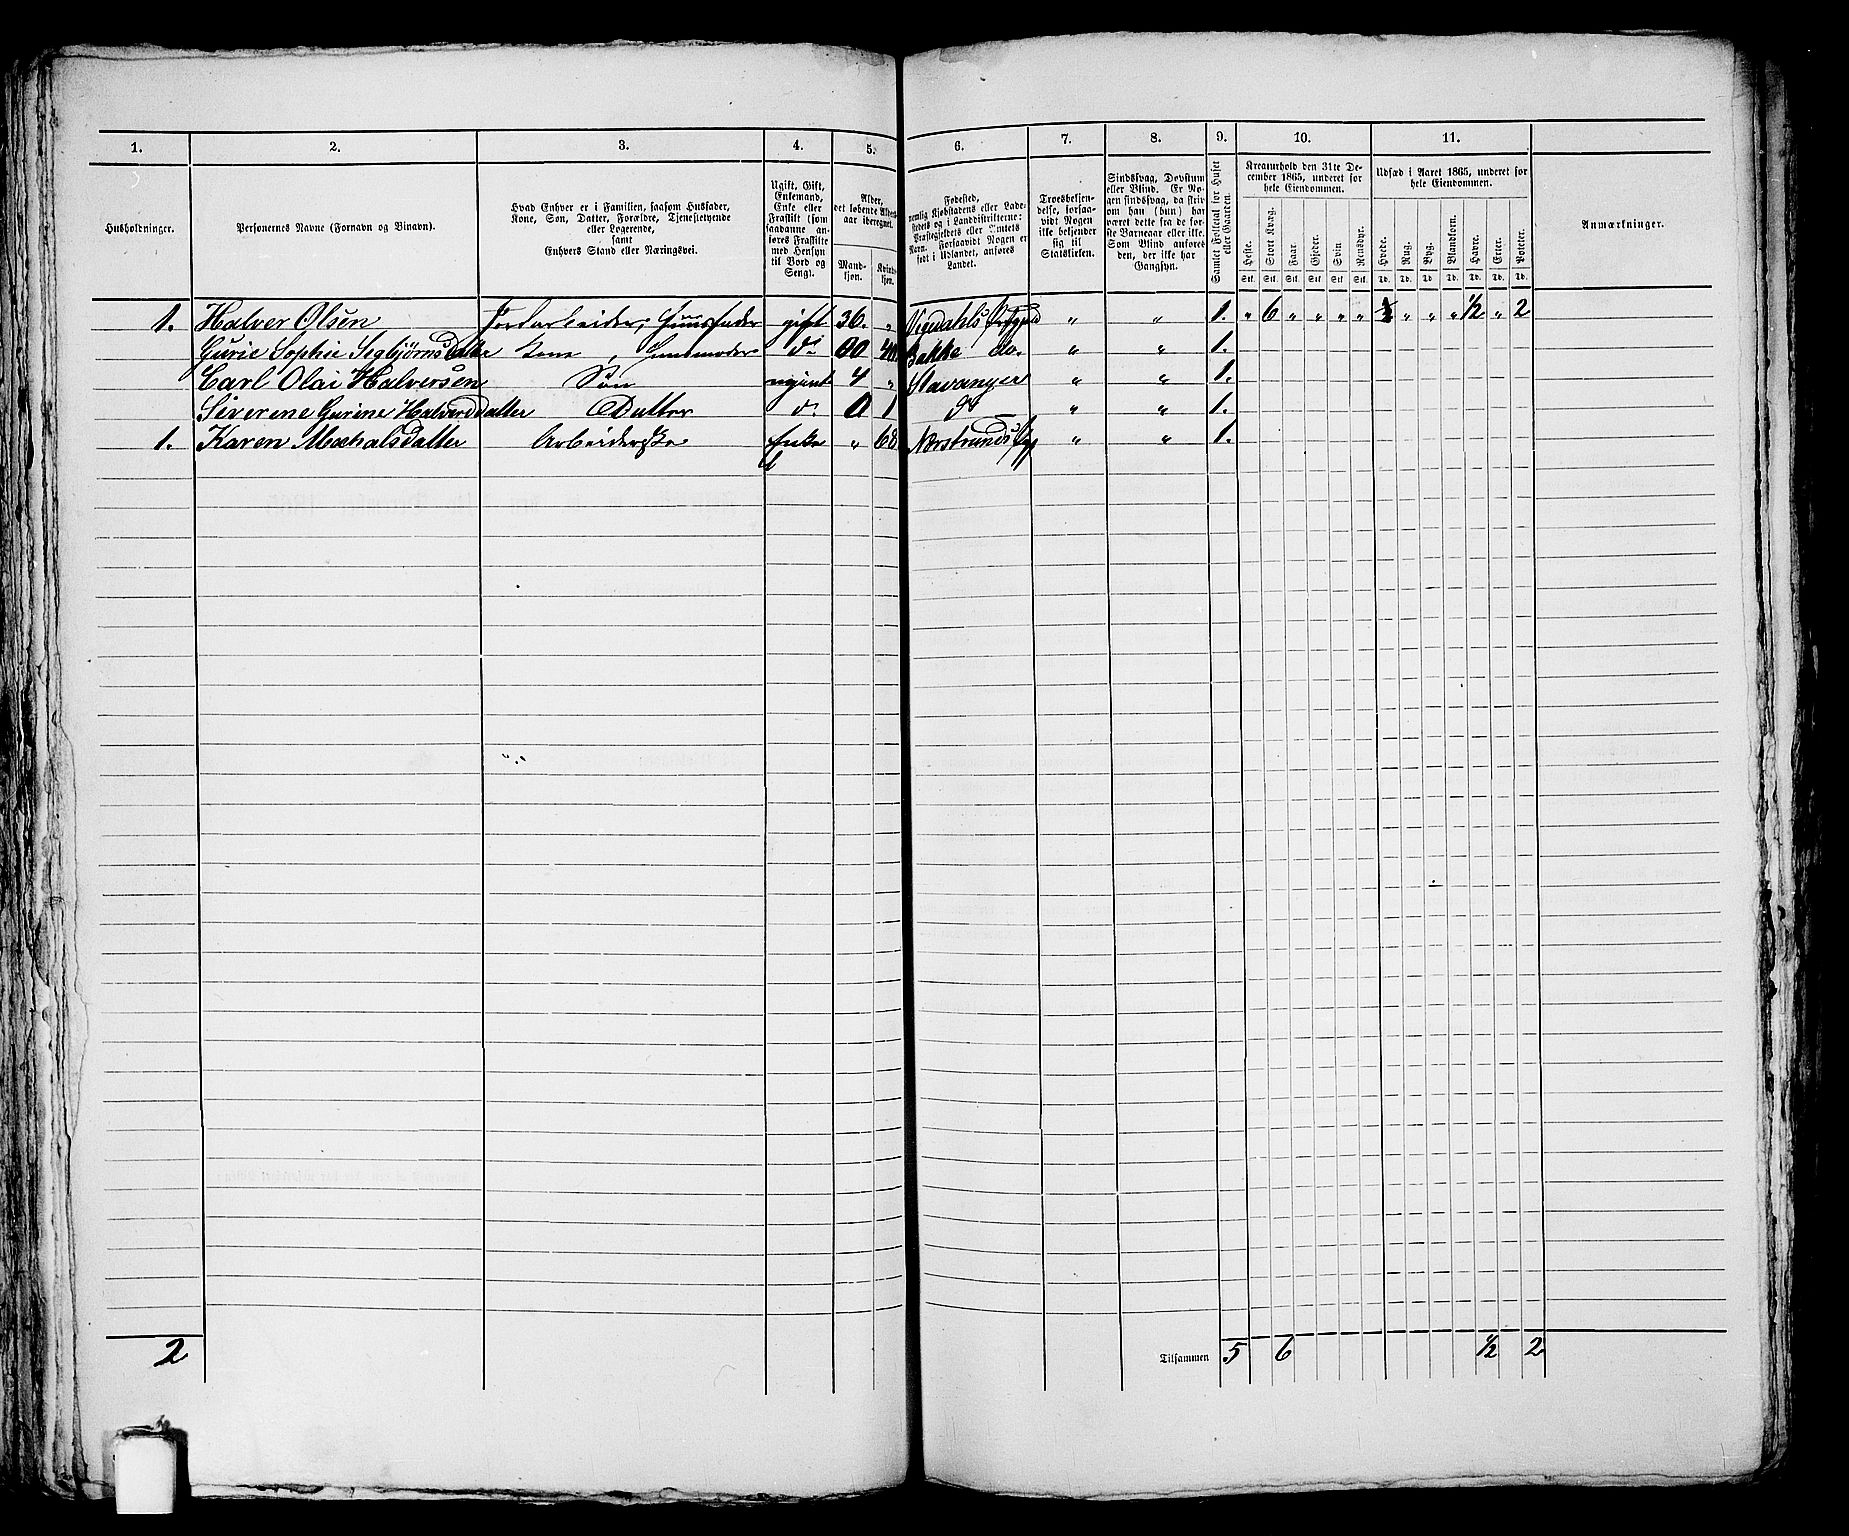 1. 2. 3. 4. 5. 6. 7. 8. 9. 10. 11.
Husholdninger.
Personernes Navne (Fornavn og Binavn).
Hvad Enhver er i Familien, saasom Husfader,
Kone, Søn, Datter, Forældre, Tjenestetyende
eller Logerende,
samt
Enhvers Stand eller Næringsvei.
Ugift, Gift,
Enkemand,
Enke eller
Fraskilt (som
saadanne an-
føres Fraskilte
med Hensyn
til Bord og
Seng).
Alder,
det løbende Alders-
aar iberegnet.
Mand-
kjøn.
Kvind-
kjøn.
Fødested,
nemlig Kjøbstadens eller Lade-
stedets og i Landdistrikterne:
Præstegjeldets eller Amtets
Navn. Forsaavidt Nogen er
født i Udlandet, anføres
Landet.
Troesbekjen-
delse, forsaa-
vidt Nogen
ikke bekjender
sig til
Statskirken.
Sindssvag, Døvstum
eller Blind. Er No-
gen sindssvag, da skriv
om han (hun) har
været dette fra de før-
ste Barneaar eller ikke.
Som Blind anføres
den, der ikke har
Gangsyn.
Gamlet Folketal for Huset
eller Gaarden.
Kreaturhold den 31te De-
cember 1865, underet for
hele Eiendommen.
Heste. Stort Kvæg. Faar. Gjeder. Svin Rensdyr.
Stk. Stk. Stk. Stk. Stk. Stk.
Udsæd i Aaret 1865, underet for
hele Eiendommen.
Hvede. Rug. Byg. Blandkorn. Havre. Erter. Poteter.
Td. Td. Td. Td. Td. Td. Td.
Anmærkninger.
1. Halver Olsen Jordarbeider, Huusfader gift 36. „ Sognd „ „ 1. „ 6 „ „ „ „ „ „ „ ½ „ 2
Gurie Sophie Segbjørnsdatter Kone, Huusmoder do 40 Bakke do. „ „ 1.
Carl Olai Halversen Søn ugivt 4 „ Stavanger „ „ 1.
Severine Gurine Halversdatter Datter do 1 do „ „ 1.
1. Karen Michalsdatter Arbeiderske Enke „ 68 Nerstrands „ „ 1.
2 Tilsammen 5 6 ½ 2